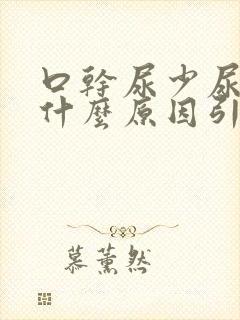 口幹尿少尿
什麼原因引
慕薰然